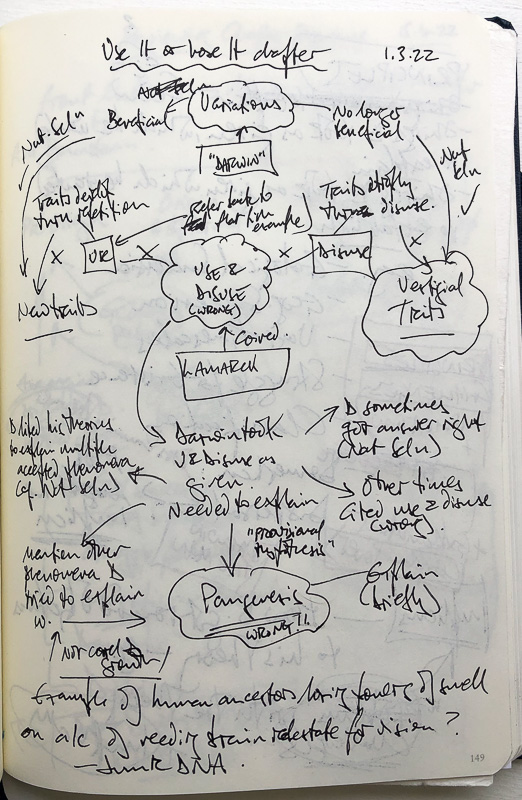 Use It or Lose It chapter
1.3.22
Variations
Beneficial
No longer
beneficial
Nat. Selⁿ
"DARWIN"
Nat
Selⁿ
Traits develop
through repetition
Refer back to
flat fish
example
Traits atrophy
through disuse.
X
USE
X
USE &
DISUSE
(WRONG)
X
Disuse
X
New traits
Vestigial
Traits
Coined.
LAMARCK
D liked his theories
to explain multiple
accepted phenomena
(cf. Nat Selⁿ)
Darwin took
U & Disuse as
given.
Needed to explain
D sometimes
got answer right
(Nat Selⁿ)
Other times
cited use & disuse
(wrong).
"provisional
hypothesis"
Mention other
phenomena D
tried to explain
w.
Pangenesis
WRONG!!
Explain
(briefly)
Example of human ancestors losing powers of smell
on a/c of needing brain realestate for vision?
— Junk DNA.
149